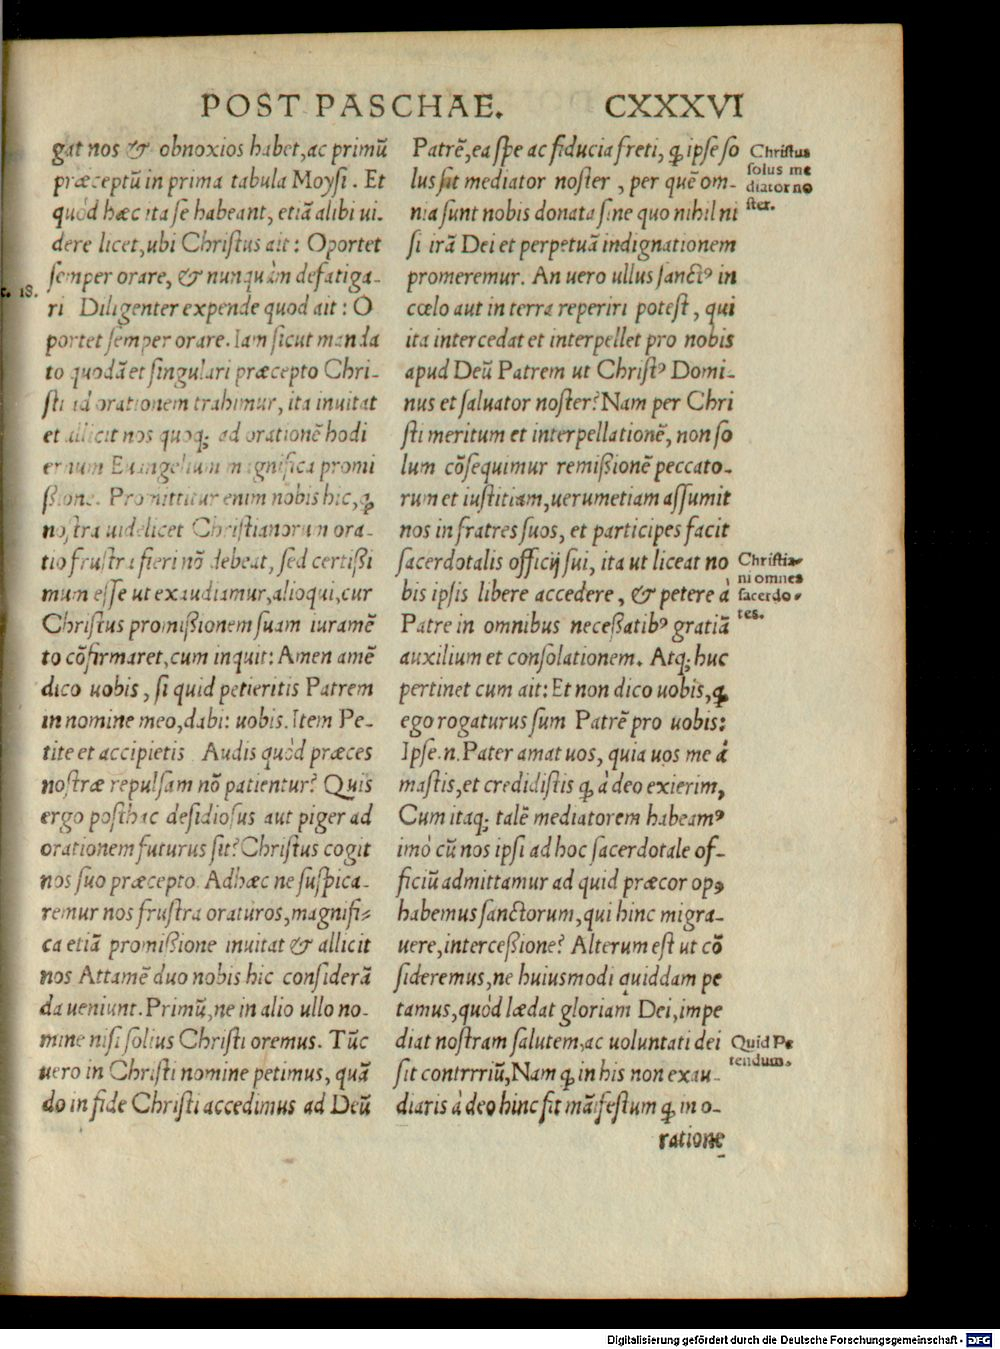 POST PASCHAE. CXXXVI
gat nos & obnoxios habet, ac primū
præceptū in prima tabula Moysi. Et
quòd hæc ita se habeant, etiā alibi ui-
dere licet, ubi Christus ait: Oportet
semper orare, & nunquàm defatiga-
c. 18.
ri Diligenter expende quod ait: O
portet semper orare. Iam sicut manda
to quodā et singulari præcepto Chri-
sti ad orationem trahimur, ita inuitat
et allicit nos quoq; ad orationē hodi
ernum Euangelium magnifica promi
ßione. Promittitur enim nobis hic, ꝙ
nostra uidelicet Christianorum ora-
tio frustra fieri nō debeat, sed certißi
mum esse ut exaudiamur, alioqui, cur
Christus promißionem suam iuramē
to cōfirmaret, cum inquit: Amen amē
dico uobis, si quid petieritis Patrem
in nomine meo, dabit uobis. Item Pe-
tite et accipietis Audis quòd præces
nostræ repulsam nō patientur? Quis
ergo posthac desidiosus aut piger ad
orationem futurus sit? Christus cogit
nos suo præcepto. Adhæc ne suspica-
remur nos frustra oraturos, magnifi-
ca etiā promißione inuitat & allicit
nos Attamē duo nobis hic considerā
da ueniunt. Primū, ne in alio ullo no-
mine nisi solius Christi oremus. Tūc
uero in Christi nomine petimus, quā
do in fide Christi accedimus ad Deū
Patrē, ea spe ac fiducia freti, ꝙ ipse so
lus sit mediator noster, per quē om-
nia sunt nobis donata sine quo nihil ni
si irā Dei et perpetuā indignationem
promeremur. An uero ullus sanctꝰ in
cœlo aut in terra reperiri potest, qui
ita intercedat et interpellet pro nobis
apud Deū Patrem ut Christꝰ Domi-
nus et saluator noster? Nam per Chri
sti meritum et interpellationē, non so
lum cōsequimur remißionē peccato-
rum et iustitiam, uerumetiam assumit
nos in fratres suos, et participes facit
sacerdotalis officij sui, ita ut liceat no
bis ipsis libere accedere, & petere à
Patre in omnibus neceßatibꝰ gratiā
auxilium et consolationem. Atq; huc
pertinet cum ait: Et non dico uobis, ꝙ
ego rogaturus sum Patrē pro uobis:
Ipse .n. Pater amat uos, quia uos me a
mastis, et credidistis ꝙ à deo exierim,
Cum itaq; talē mediatorem habeamꝰ
imò cū nos ipsi ad hoc sacerdotale of-
ficiū admittamur ad quid præcor opꝰ
habemus sanctorum, qui hinc migra-
uere, interceßione? Alterum est ut cō
sideremus, ne huiusmodi quiddam pe
tamus, quòd lædat gloriam Dei, impe
diat nostram salutem, ac uoluntati dei
sit contrrriū, Nam ꝙ in his non exau-
diaris à deo hinc fit māifestum ꝙ in o-
ratione
Christus
solus me
diator no
ster.
Christia-
ni omnes
sacerdo-
tes.
Quid Pe
tendum.
Digitalisierung gefördert durch die Deutsche Forschungsgemeinschaft - DFG